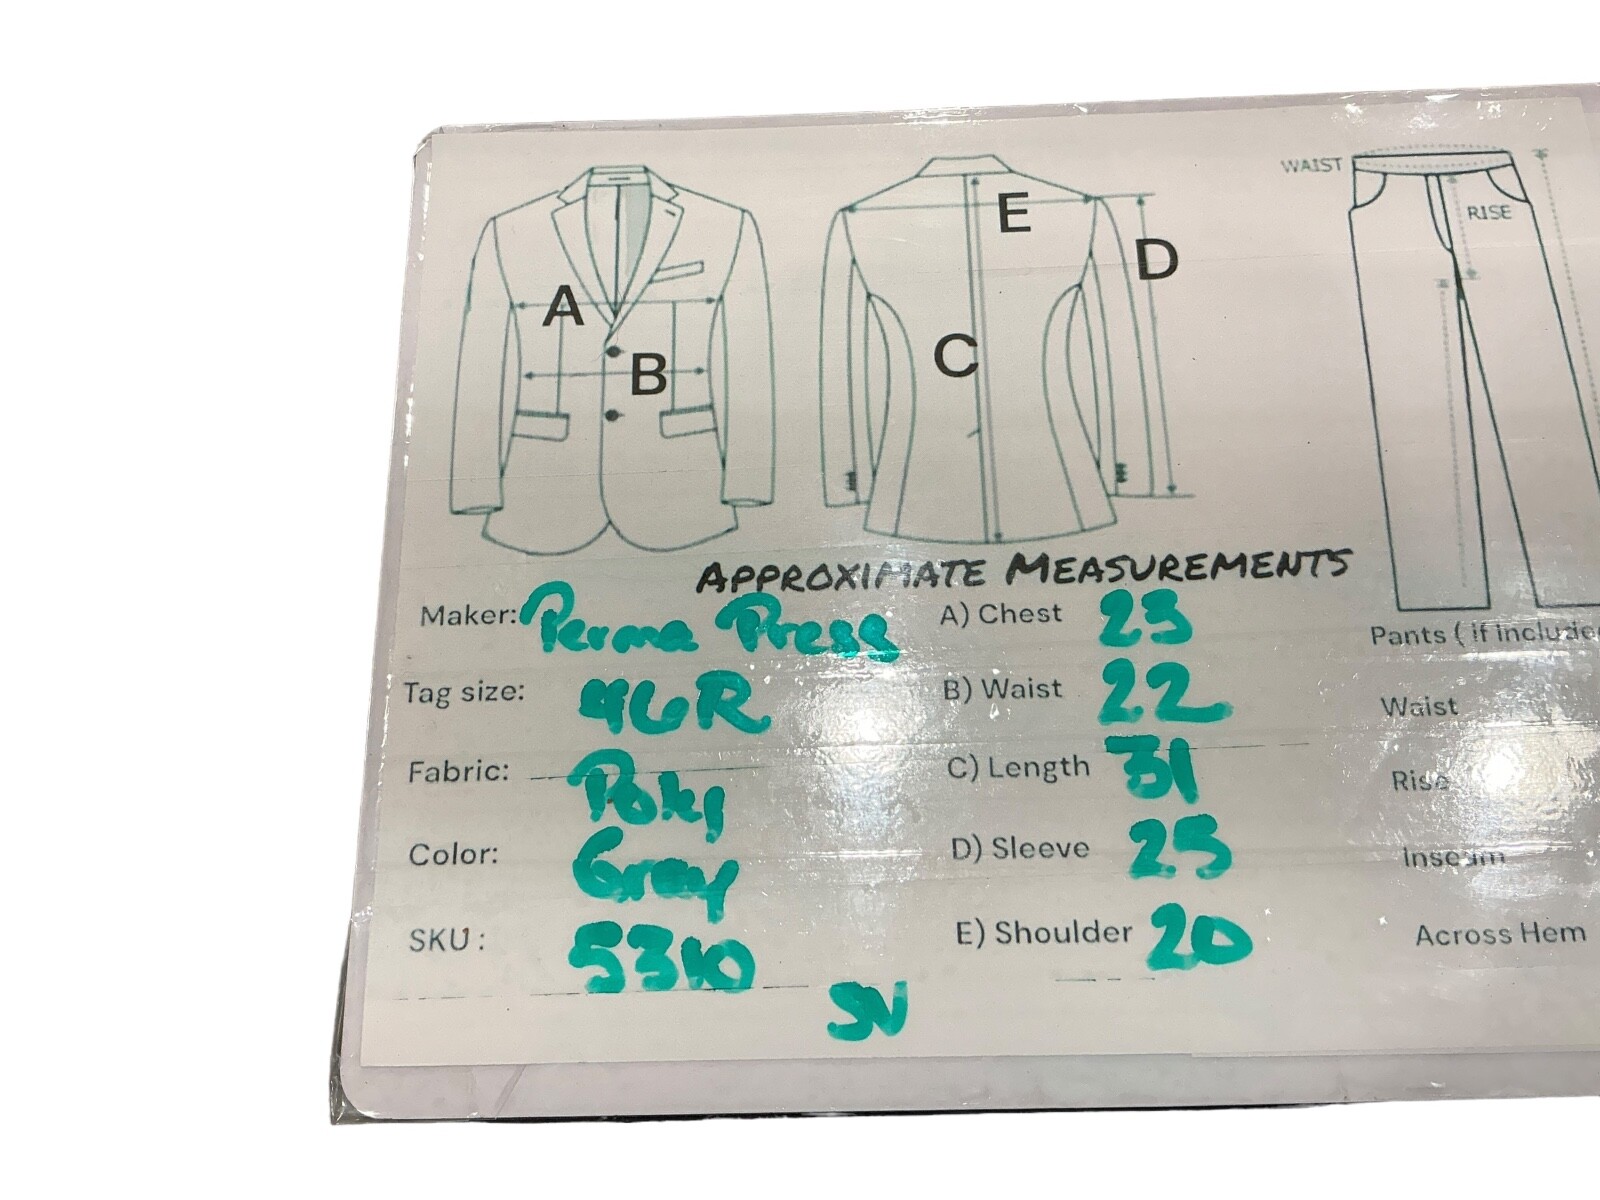 WAIST
RISE
A
B
C
D
E
APPROXIMATE MEASUREMENTS
Maker: Perma Press
Tag size: 46R
Fabric: Poly
Color: Gray
SKU: 5310
SV
A) Chest 23
B) Waist 22
C) Length 31
D) Sleeve 25
E) Shoulder 20
Pants ( if include
Waist
Rise
Inseam
Across Hem